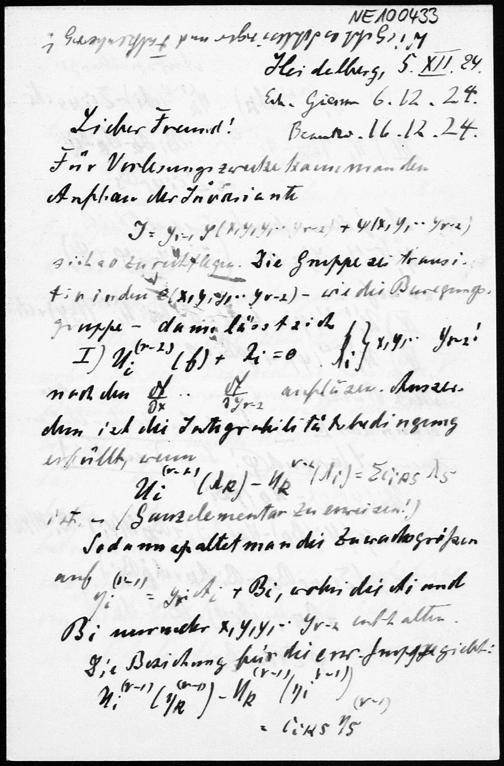 NE100433
Heidelberg, 5. XII. 24.
6.12.24.
16.12.24.
Lieber Freund!
Für Vorlesungszwecke kann man den
Aufbau der Invariante
J = y_{r-1} φ(x, y, y_1 ·· y_{r-2}) + ψ(x, y, ·· y_{r-2})
sich so zurechtlegen. Die Gruppe sei transi-
tiv in den (x, y, y_1 ·· y_{r-2}) – wie die Bewegungs-
gruppe – dann lässt sich
I) U_i^{(r-2)} (f) + λ_i = 0 λ_i } x, y, ·· y_{r-2}!
nach den ∂f/∂x ·· ∂f/∂y_{r-2} auflösen. Ausser-
dem ist die Integrabilitätsbedingung
erfüllt, wenn
U_i^{(r-2)} (λ_k) – U_k^{r-2} (λ_i) = Σ c_{iks} λ_s
ist. – (Ganz elementar zu erweisen!)
Sodann spaltet man die Zuwachsgrößen
auf η_i^{(r-1)} = y A_i + B_i, wobei die A_i und
B_i nurmehr x, y, y_1 ·· y_{r-2} enthalten.
Die Beziehung für die erw. Gruppe giebt:
U_i^{(r-1)} (η_k^{(r-1)}) – U_k^{(r-1)} (η_i^{(r-1)})
= c_{iks} η_s^{(r-1)}